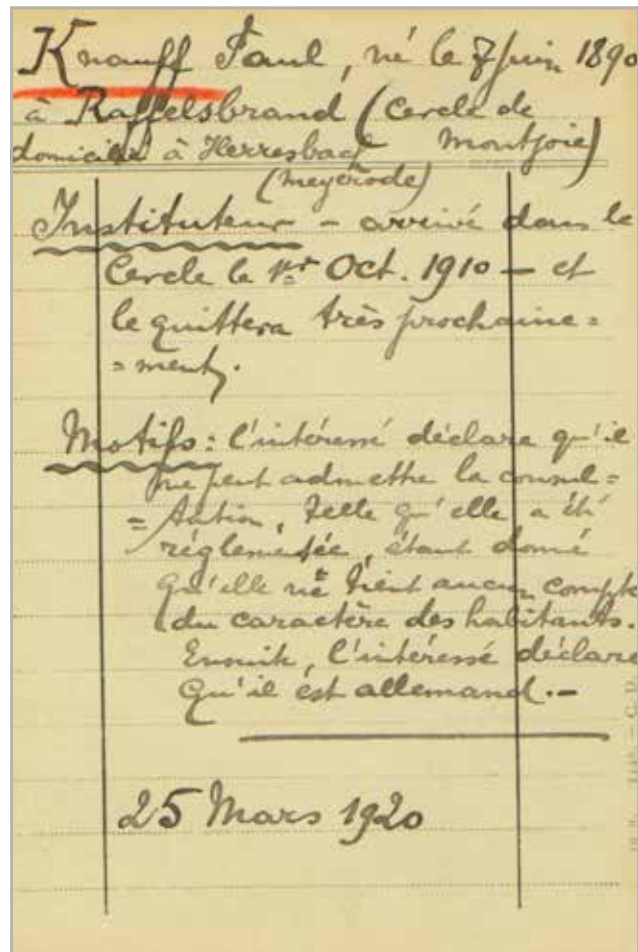 Knauff Paul, né le 7 juin 1890
à Raffelsbrand (Cercle de
Montjoie)
domicilié à Herresbach
(Meyerode)
Instituteur - arrivé dans le
Cercle le 1er Oct. 1910 - et
le quittera très prochaine=
=ment.
Motifs: l'intéressé déclare qu'il
ne peut admettre la consul=
=tation, telle qu'elle a été
réglementée, étant donné
qu'elle ne tient aucun compte
du caractère des habitants.
Ensuite, l'intéressé déclare
qu'il est allemand.-
25 Mars 1920